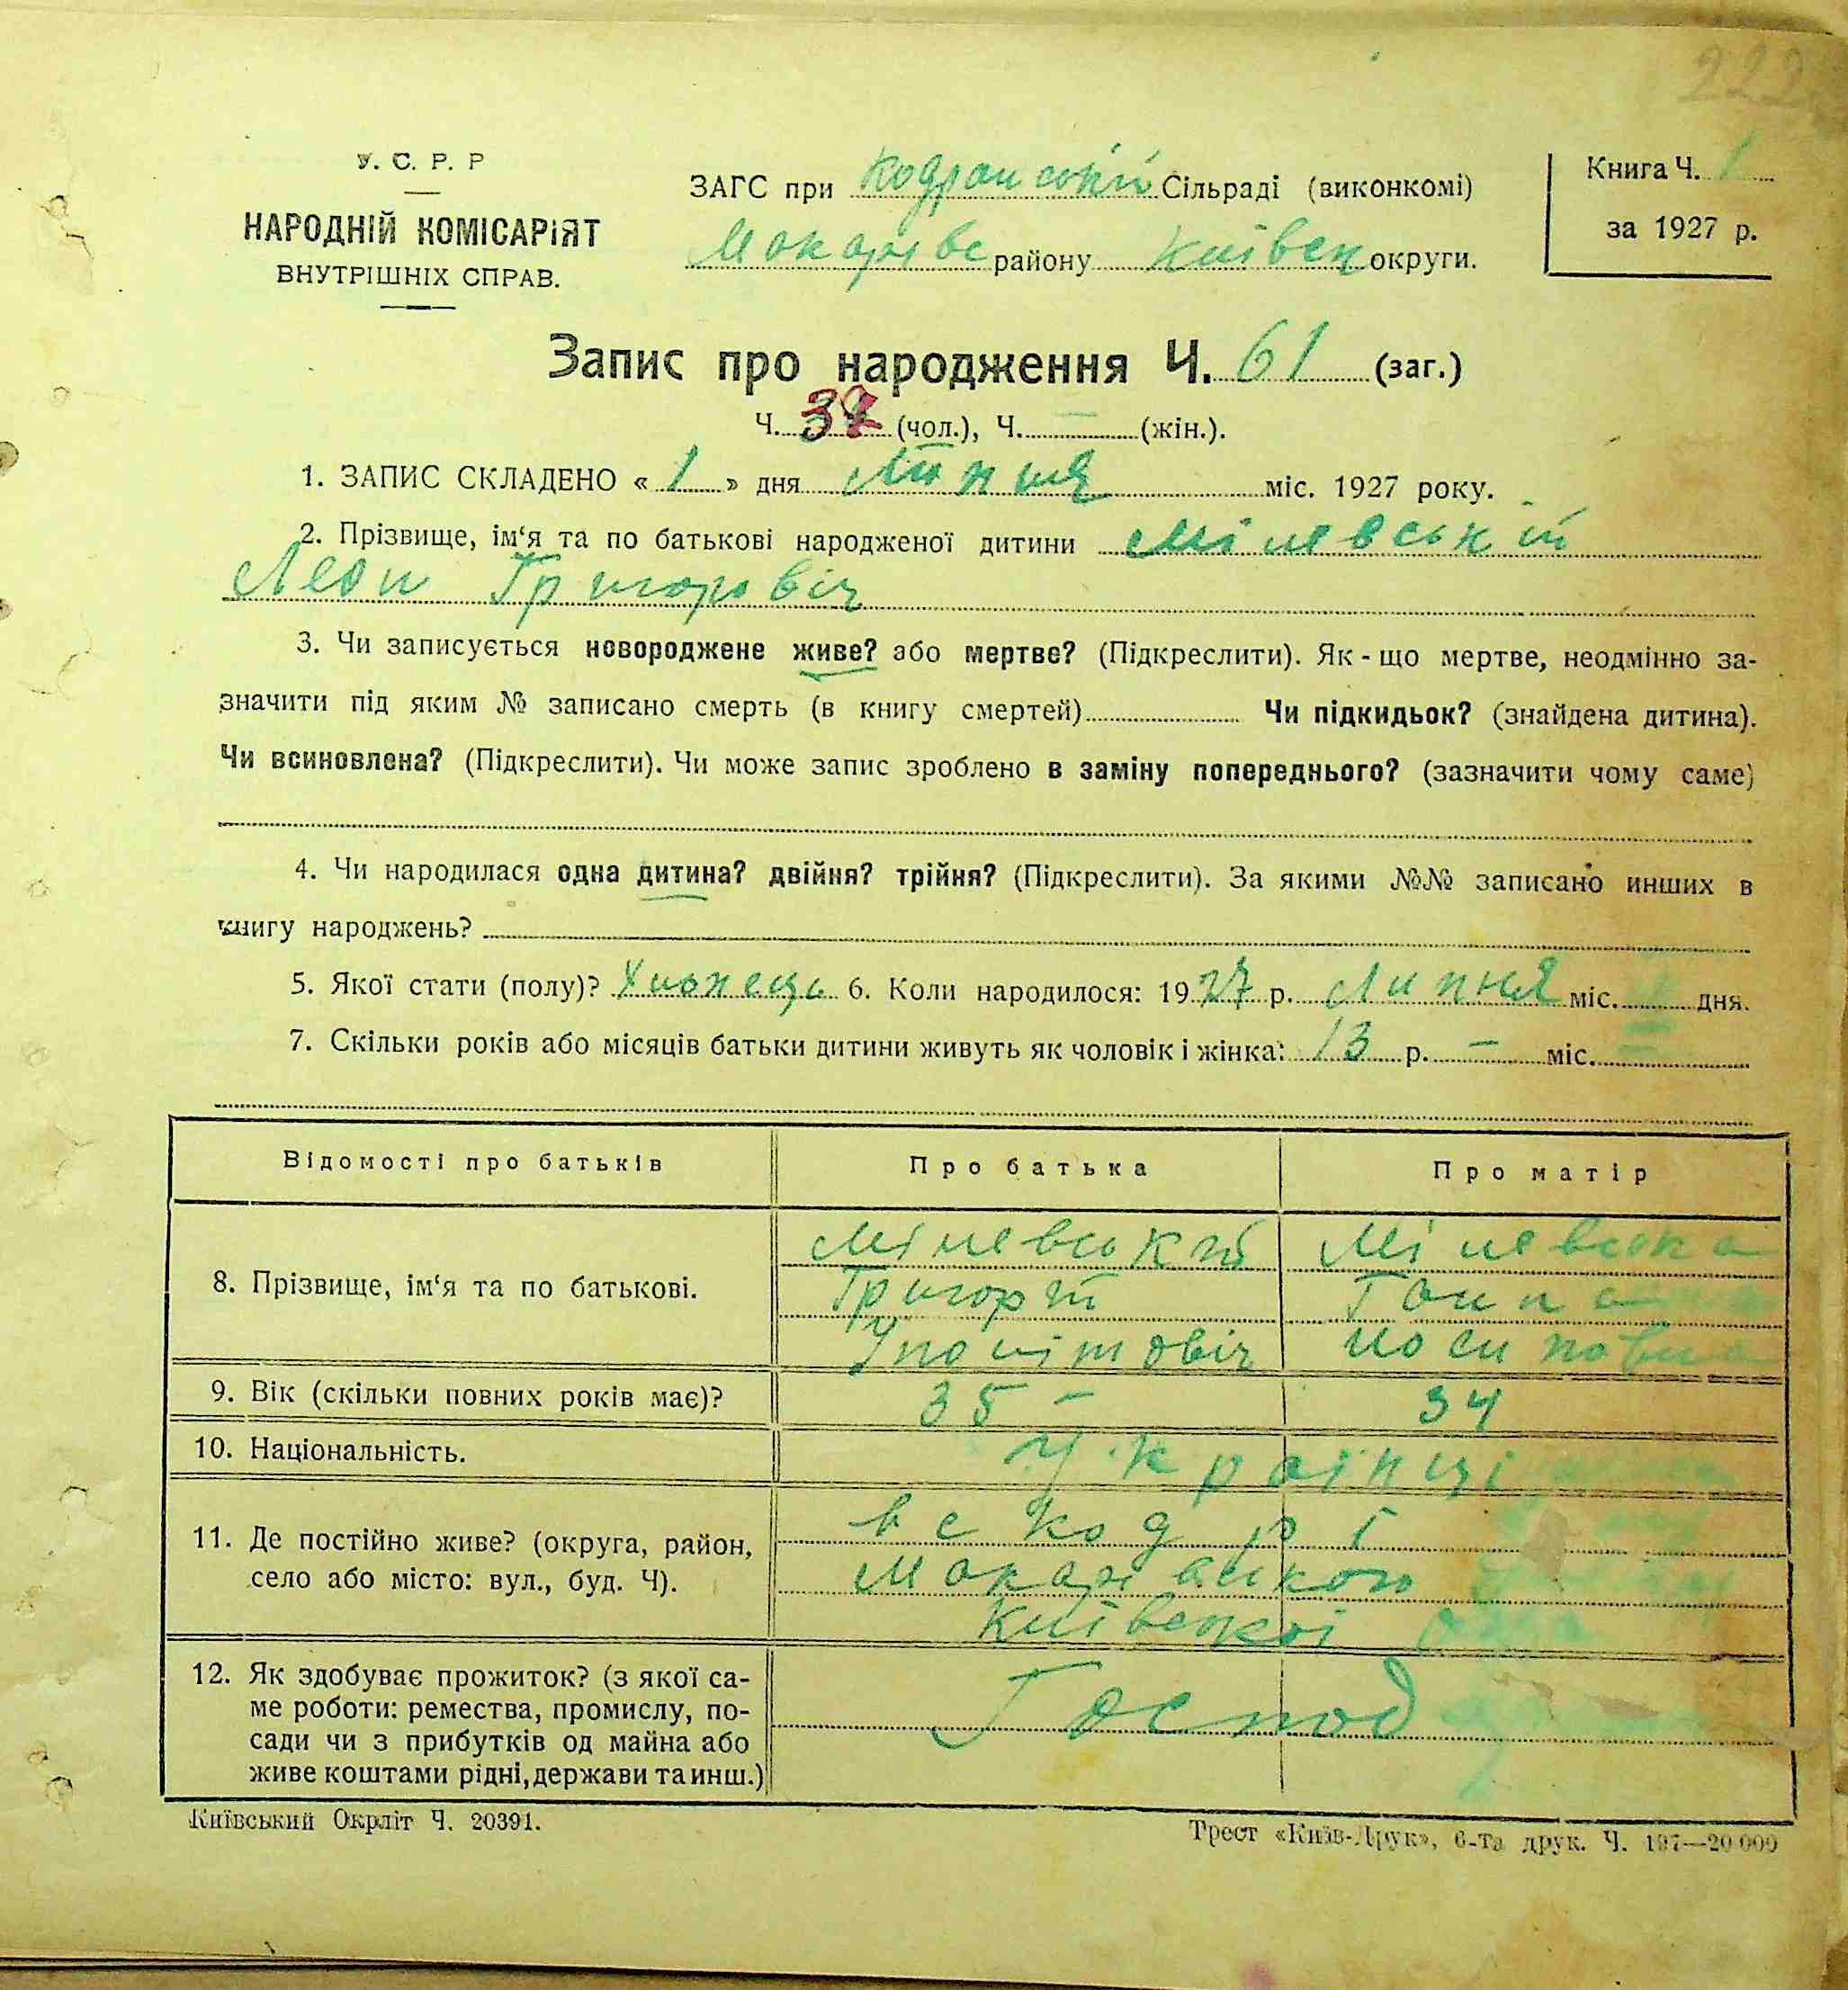 222
У. С. Р. Р
НАРОДНІЙ КОМІСАРІЯТ
ВНУТРІШНІХ СПРАВ.
ЗАГС при Кодранській Сільраді (виконкомі)
Макарівс району Київськ округи.
Книга Ч. 1
за 1927 р.
Запис про народження Ч. 61 (заг.)
Ч. 37 (чол.), Ч. — (жін.).
1. ЗАПИС СКЛАДЕНО « 1 » дня Липня міс. 1927 року.
2. Прізвище, ім‘я та по батькові народженої дитини Мілевській
Леон Григоровіч
3. Чи записується новороджене живе? або мертве? (Підкреслити). Як-що мертве, неодмінно за-
значити під яким № записано смерть (в книгу смертей) Чи підкидьок? (знайдена дитина).
Чи всиновлена? (Підкреслити). Чи може запис зроблено в заміну попереднього? (зазначити чому саме)
4. Чи народилася одна дитина? двійня? трійня? (Підкреслити). За якими №№ записано инших в
книгу народжень?
5. Якої стати (полу)? Хлопець 6. Коли народилося: 1927 р. Липня міс. дня.
7. Скільки років або місяців батьки дитини живуть як чоловік і жінка: 13 р. — міс.
Відомості про батьків Про батька Про матір
8. Прізвище, ім‘я та по батькові.
Мілевській Мілевська
Григорій Ганна
Іполітовіч Йосиповна
9. Вік (скільки повних років має)? 35 — 34
10. Національність. Українці
11. Де постійно живе? (округа, район,
село або місто: вул., буд. Ч).
в с Кодрі
Макарівського
Київської
12. Як здобуває прожиток? (з якої са-
ме роботи: ремества, промислу, по-
сади чи з прибутків од майна або
живе коштами рідні, держави та инш.)
Господ
Київський Окрліт Ч. 20391.
Трест «Київ-Друк», 6-та друк. Ч. 197—20 000